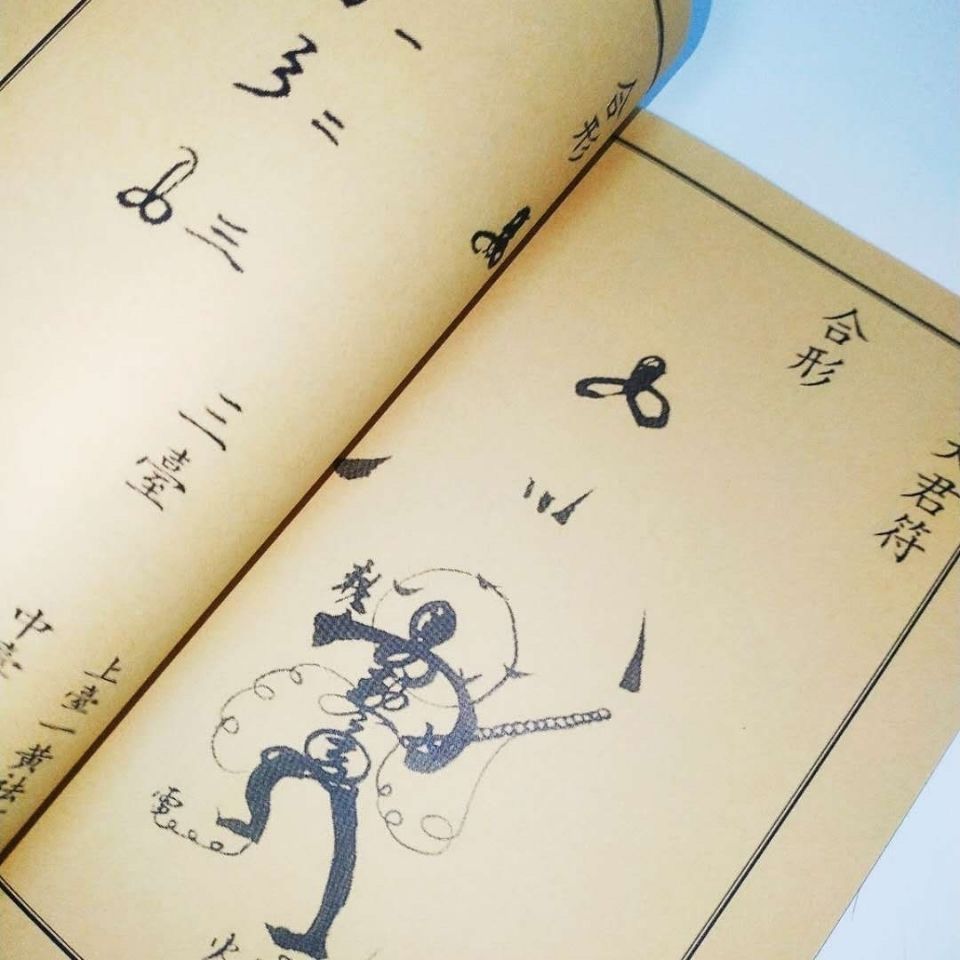 君符
合形
電
火
合形
一
二
三
三臺
上臺一黃
中